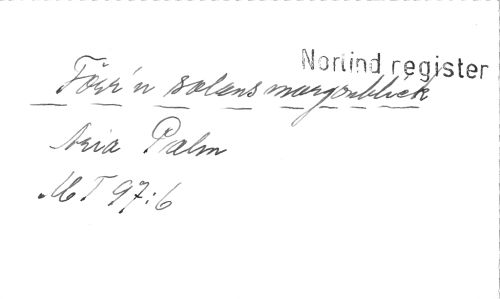 Nortind register
Förr'n solens morgonblick
Aria Palm
MT 97:6